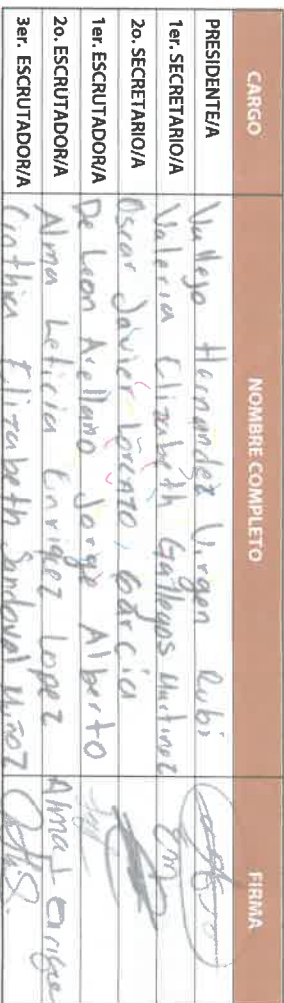 CARGO NOMBRE COMPLETO FIRMA
PRESIDENTE/A Vallejo Hernandez Virgen Rubi
1er. SECRETARIO/A Valeria Elizabeth Gallegos Martinez
2o. SECRETARIO/A Oscar Javier Lorenzo Garcia
1er. ESCRUTADOR/A De Leon Arellano Jorge Alberto
2o. ESCRUTADOR/A Alma Leticia Enriquez Lopez Alma L
3er. ESCRUTADOR/A Cinthia Elizabeth Sandoval Muñoz